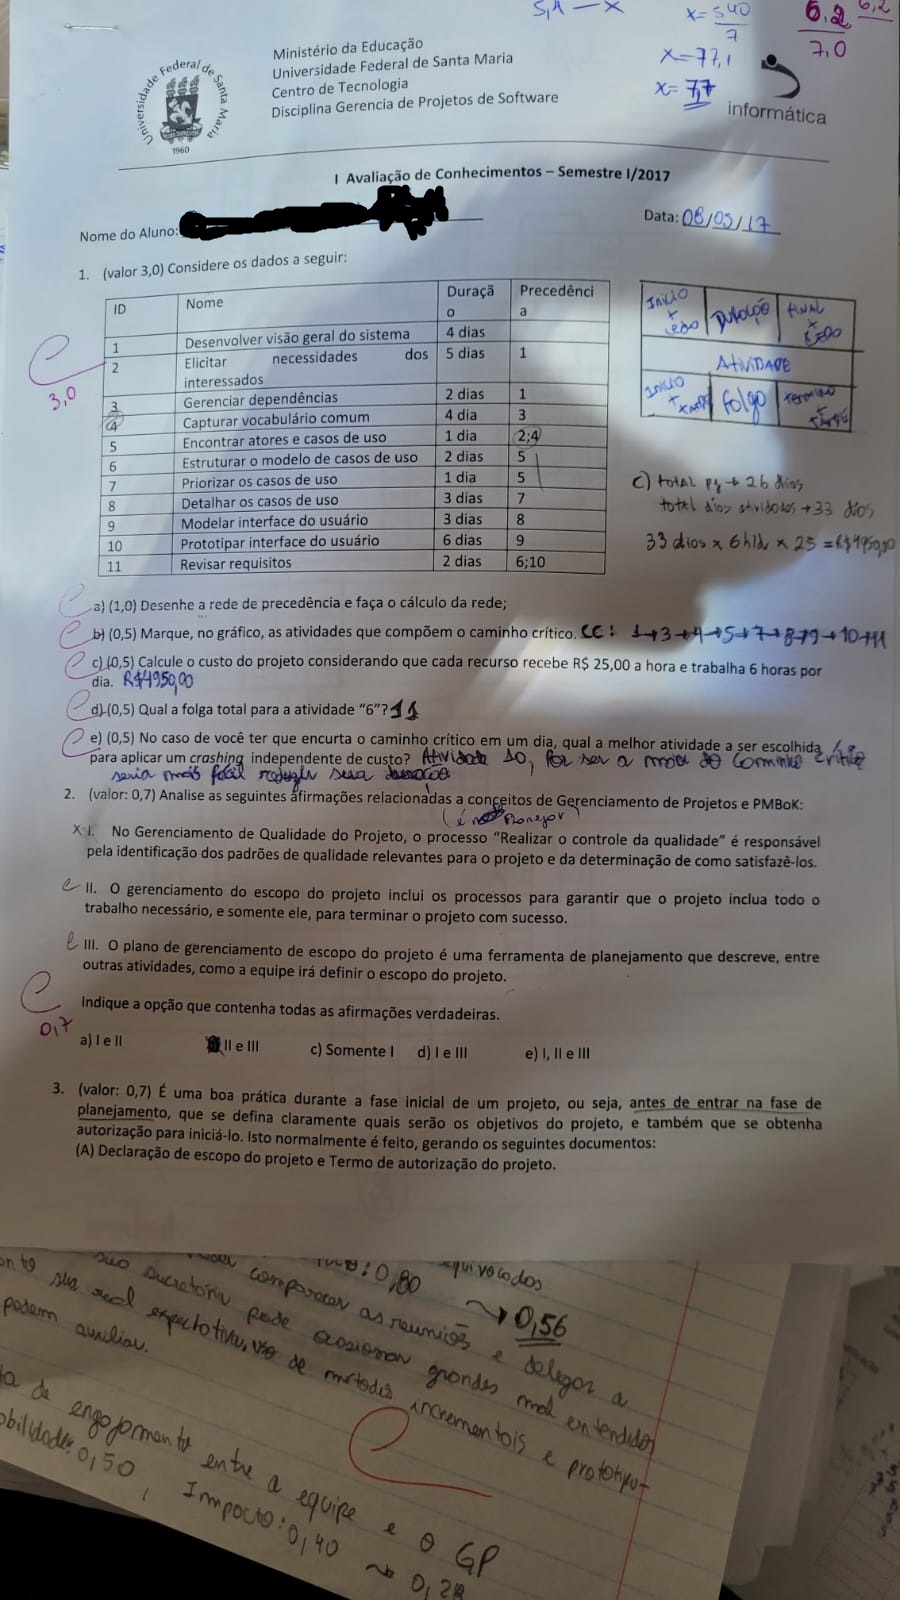 5,4 — x
x = 540
7
x = 77,1
x = 7,7
6,2
7,0
6,2
Ministério da Educação
Universidade Federal de Santa Maria
Centro de Tecnologia
Disciplina Gerencia de Projetos de Software
Universidade Federal de Santa Maria
1960
informática
I Avaliação de Conhecimentos – Semestre I/2017
Nome do Aluno:
Data: 08/05/17
1. (valor 3,0) Considere os dados a seguir:
ID Nome Duraçã o Precedênci a
1 Desenvolver visão geral do sistema 4 dias
2 Elicitar necessidades dos interessados 5 dias 1
3 Gerenciar dependências 2 dias 1
4 Capturar vocabulário comum 4 dia 3
5 Encontrar atores e casos de uso 1 dia 2;4
6 Estruturar o modelo de casos de uso 2 dias 5
7 Priorizar os casos de uso 1 dia 5
8 Detalhar os casos de uso 3 dias 7
9 Modelar interface do usuário 3 dias 8
10 Prototipar interface do usuário 6 dias 9
11 Revisar requisitos 2 dias 6;10
3,0
Início + cedo
Duração
Final + cedo
Atividade
Início + tarde
Folga
Término + tarde
c) total pj → 26 dias
total dias atividades → 33 dias
33 dias x 6h/d x 25 = R$4950,00
a) (1,0) Desenhe a rede de precedência e faça o cálculo da rede;
b) (0,5) Marque, no gráfico, as atividades que compõem o caminho crítico. CC: 1→3→4→5→7→8→9→10→11
c) (0,5) Calcule o custo do projeto considerando que cada recurso recebe R$ 25,00 a hora e trabalha 6 horas por
dia. R$4950,00
d) (0,5) Qual a folga total para a atividade “6”? 11
e) (0,5) No caso de você ter que encurta o caminho crítico em um dia, qual a melhor atividade a ser escolhida
para aplicar um crashing independente de custo? Atividade 10, por ser a maior do caminho crítico
seria mais fácil reduzir sua duração.
2. (valor: 0,7) Analise as seguintes afirmações relacionadas a conceitos de Gerenciamento de Projetos e PMBoK:
(é planejar)
X I. No Gerenciamento de Qualidade do Projeto, o processo “Realizar o controle da qualidade” é responsável
pela identificação dos padrões de qualidade relevantes para o projeto e da determinação de como satisfazê-los.
II. O gerenciamento do escopo do projeto inclui os processos para garantir que o projeto inclua todo o
trabalho necessário, e somente ele, para terminar o projeto com sucesso.
III. O plano de gerenciamento de escopo do projeto é uma ferramenta de planejamento que descreve, entre
outras atividades, como a equipe irá definir o escopo do projeto.
0,7
Indique a opção que contenha todas as afirmações verdadeiras.
a) I e II II e III c) Somente I d) I e III e) I, II e III
3. (valor: 0,7) É uma boa prática durante a fase inicial de um projeto, ou seja, antes de entrar na fase de
planejamento, que se defina claramente quais serão os objetivos do projeto, e também que se obtenha
autorização para iniciá-lo. Isto normalmente é feito, gerando os seguintes documentos:
(A) Declaração de escopo do projeto e Termo de autorização do projeto.
: 0,80
→ 0,56
equivocados
comparecer as reuniões e delegar a
sua secretária pode ocasionar grandes mal entendidos
sua real expectativa, uso de métodos incrementais e prototipa-
podem auxiliar.
ta de engajamento entre a equipe e o GP
obilidade: 0,50 , Impacto: 0,40 → 0,2